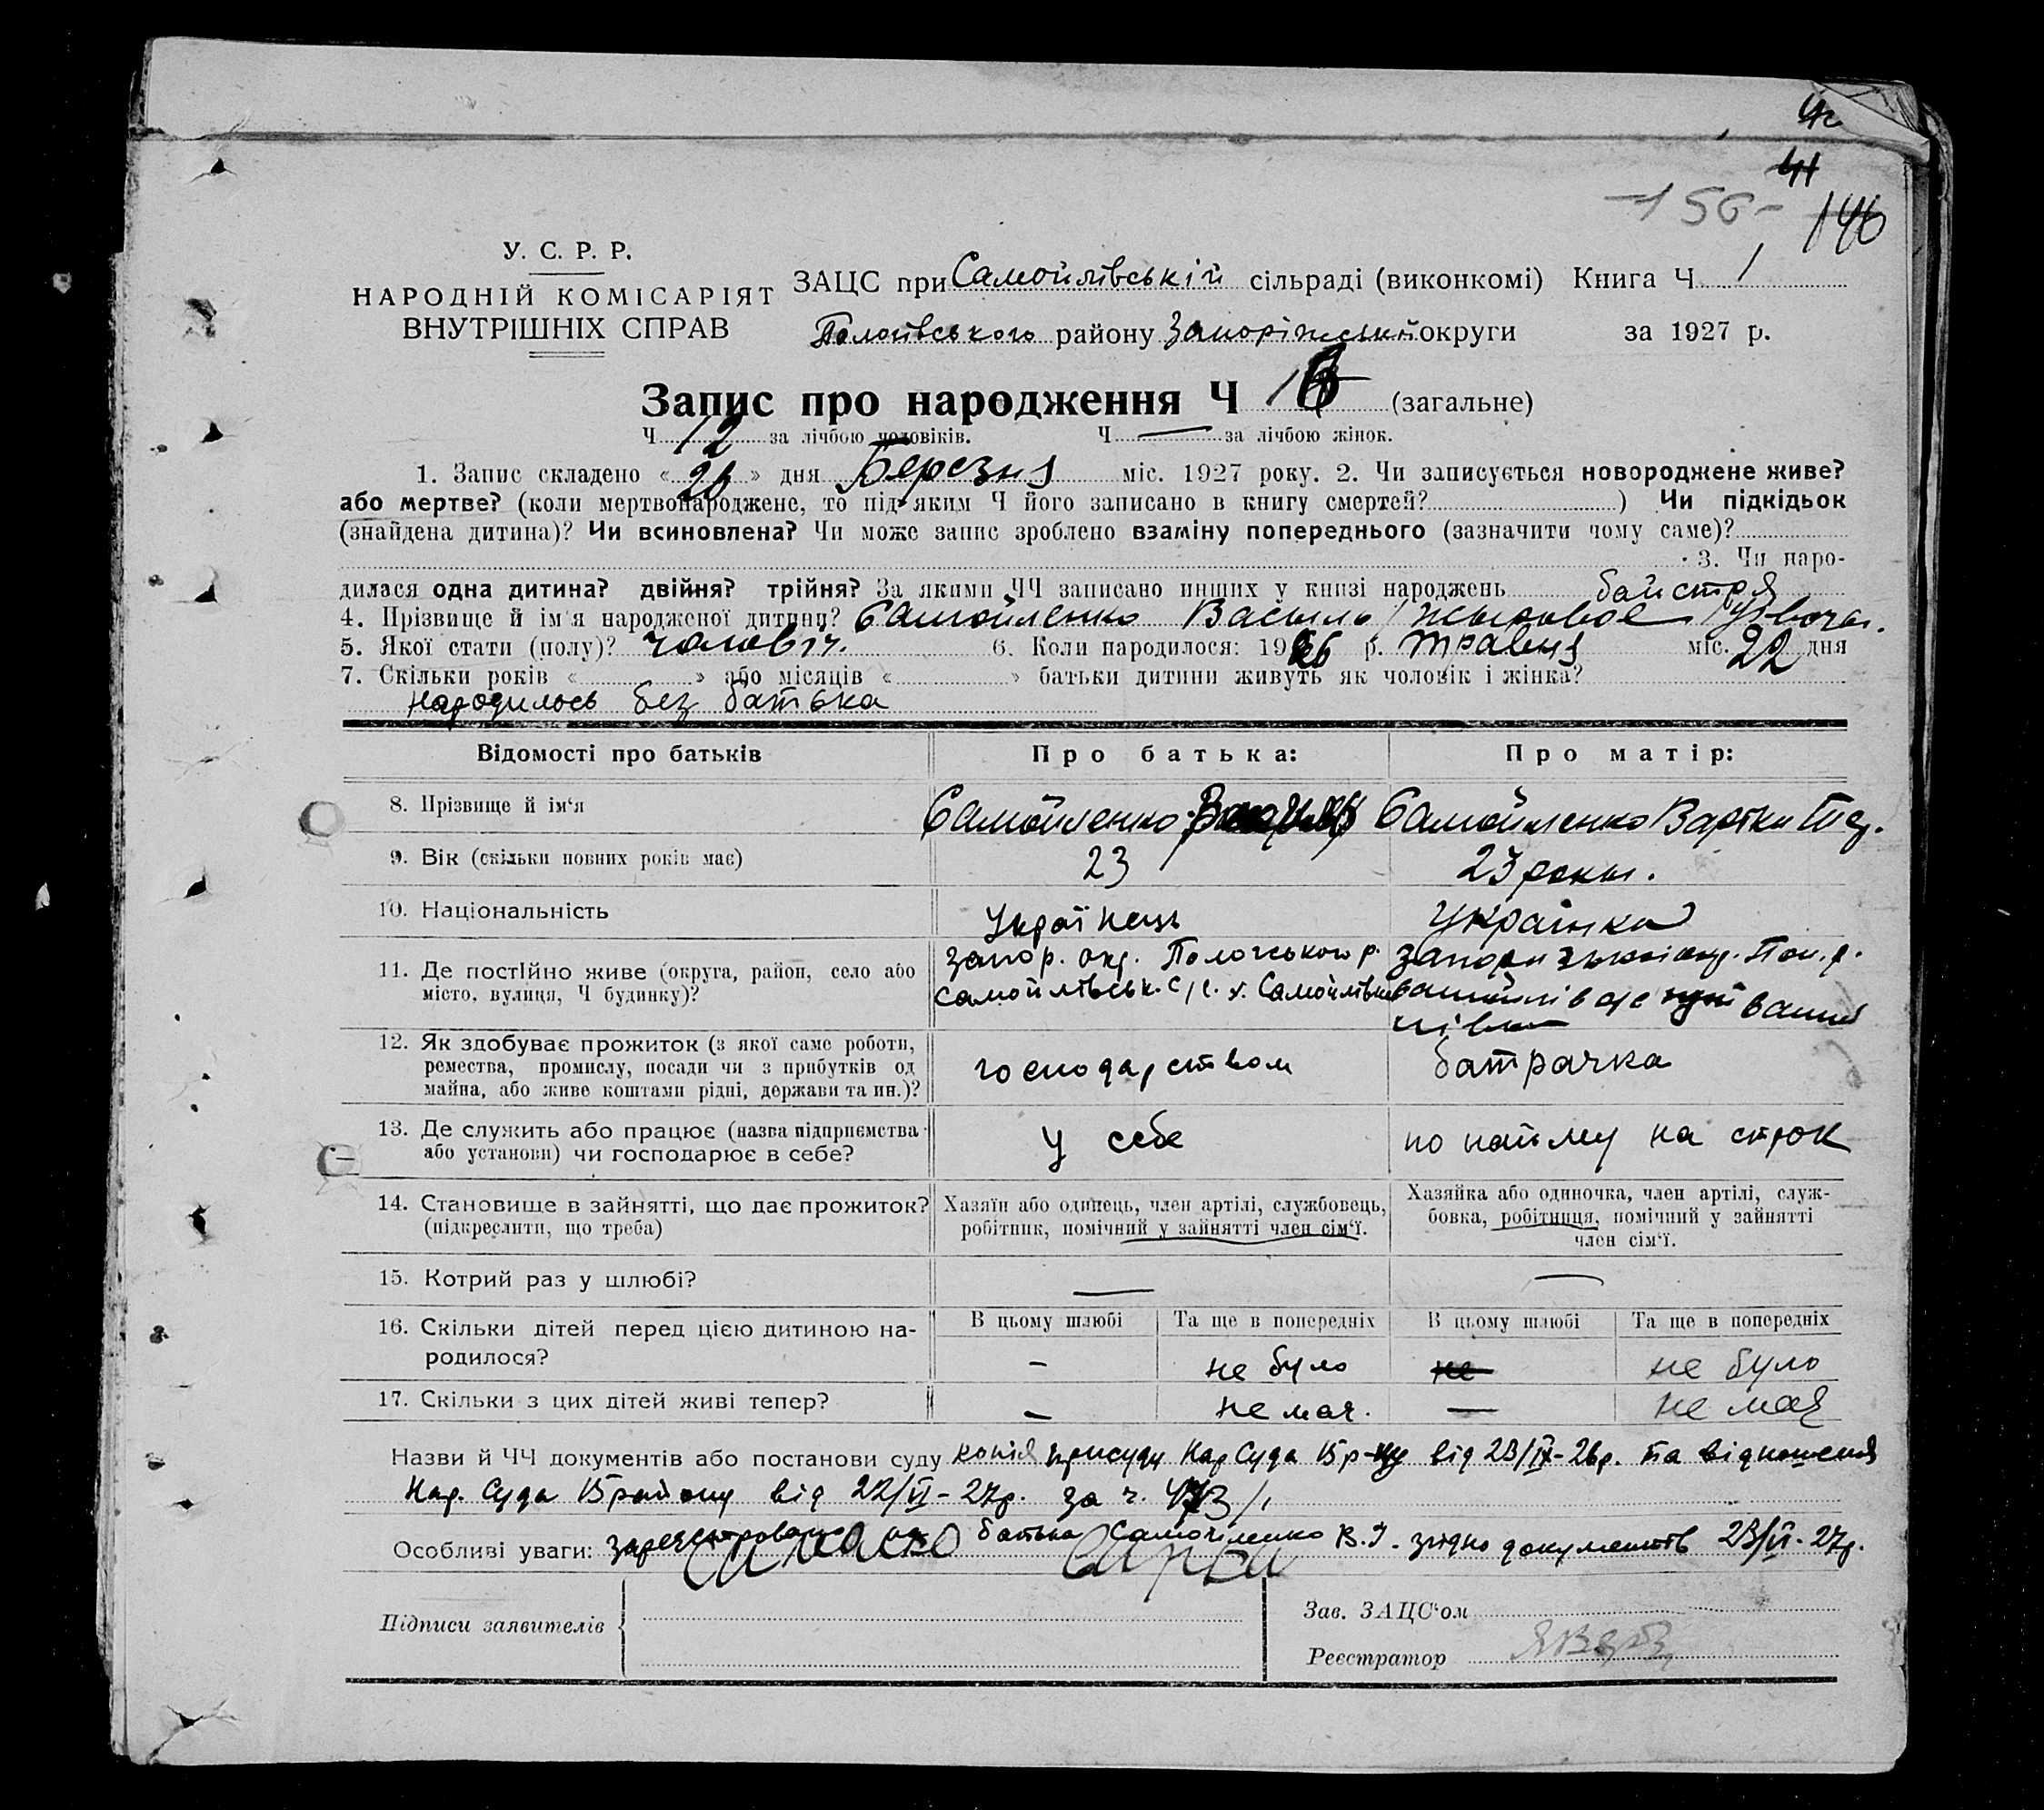 42
41
-150- 146
У. С. Р. Р.
НАРОДНІЙ КОМІСАРІЯТ
ВНУТРІШНІХ СПРАВ
ЗАЦС при Самойлівській сільраді (виконкомі) Книга Ч 1
Пологівського району Запоріжський округи за 1927 р.
Запис про народження Ч (загальне)
Ч 12 за лічбою чоловіків. Ч — за лічбою жінок.
1. Запис складено « 26 » дня Березня міс. 1927 року. 2. Чи записується новороджене живе?
або мертве? (коли мертвонароджене, то під яким Ч його записано в книгу смертей? ) Чи підкідьок
(знайдена дитина)? Чи всиновлена? Чи може запис зроблено взаміну попереднього (зазначити чому саме)?
3. Чи наро-
дилася одна дитина? двійня? трійня? За якими ЧЧ записано инших у книзі народжень байстря
4. Прізвище й ім'я народженої дитини? Самойленко Василь
5. Якої стати (полу)? чоловіч. 6. Коли народилося: 1926 р. травня міс. 22 дня
7. Скільки років « » або місяців « » батьки дитини живуть як чоловік і жінка?
народилось без батька
Відомості про батьків Про батька: Про матір:
8. Прізвище й ім'я Самойленко Самойленко Варки
9. Вік (скільки повних років має) 23 23 роки.
10. Національність Українець Українка
11. Де постійно живе (округа, район, село або запор. окр. Пологського р.
місто, вулиця, Ч будинку)? Самойлівськ. с/с. х. Самойлівка
12. Як здобуває прожиток (з якої саме роботи,
ремества, промислу, посади чи з прибутків од господарством батрачка
майна, або живе коштами рідні, держави та ин.)?
13. Де служить або працює (назва підприємства у себе по найму на строк
або установи) чи господарює в себе?
14. Становище в зайнятті, що дає прожиток? Хазяїн або одинець, член артілі, службовець, Хазяйка або одиночка, член артілі, служ-
(підкреслити, що треба) робітник, помічний у зайнятті член сім'ї. бовка, робітниця, помічний у зайнятті
член сім'ї.
15. Котрий раз у шлюбі? — —
16. Скільки дітей перед цією дитиною на- В цьому шлюбі Та ще в попередніх В цьому шлюбі Та ще в попередніх
родилося? - не було не не було
17. Скільки з цих дітей живі тепер? - не мая. — не мая
Назви й ЧЧ документів або постанови суду копія присуду Нар Суда 15 р-ну від 23/IX-26р. та відношеня
Нар. Суда 15 району від 22/VI-27р. за ч. 473/,
Особливі уваги: зарегестровано на батька Самойленко В.І. згідно документів 23/VI-27р.
Підписи заявителів
Зав. ЗАЦС'ом
Реєстратор